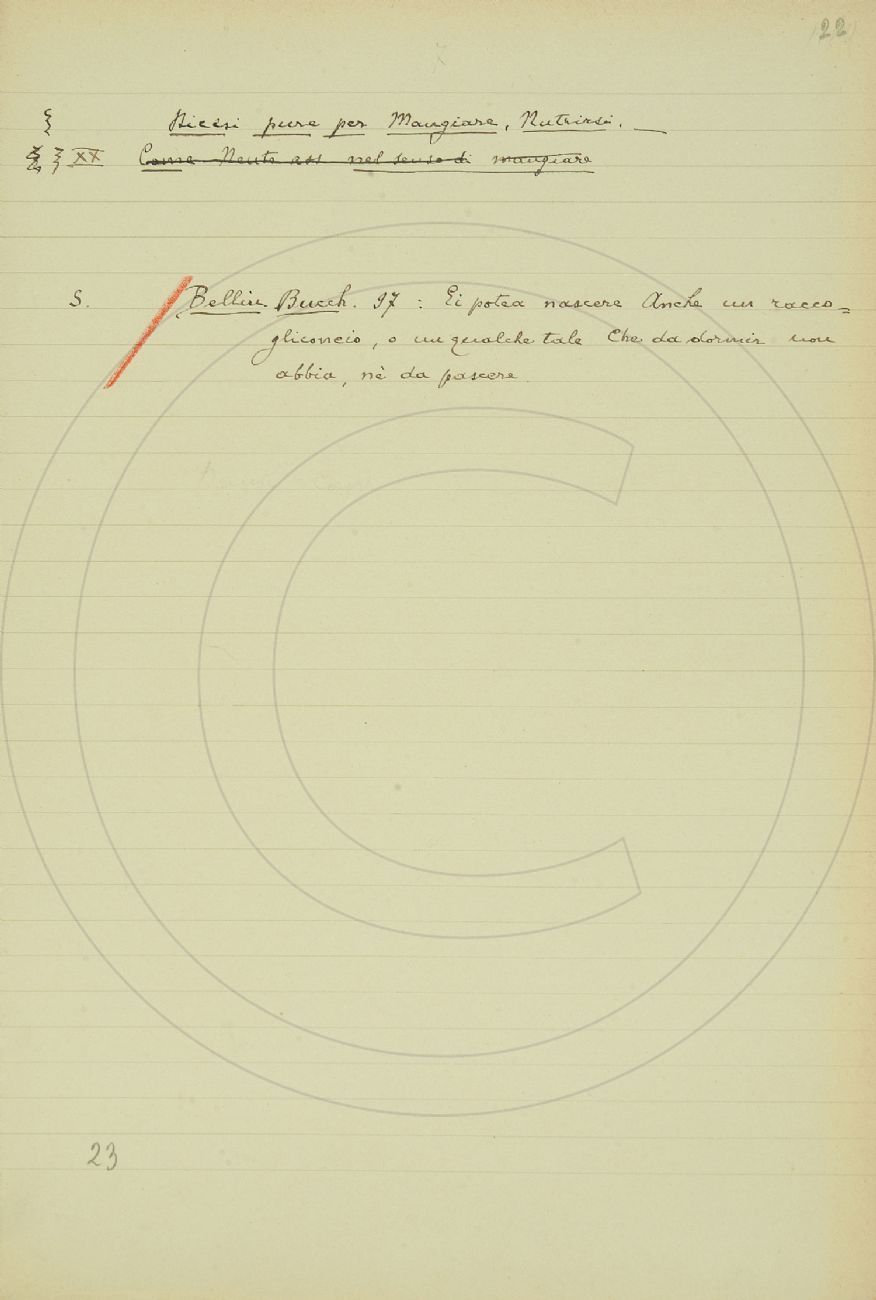 22
§ Dicesi pure per Mangiare, Nutrirsi. —
§ XX Come Neutr. ass. nel senso di mangiare
S. Bellin. Bucch. 97: Ei potea nascere Anche un racco=
gliconcio, o un qualche tale Che da dormir non
abbia, nè da pascere.
23